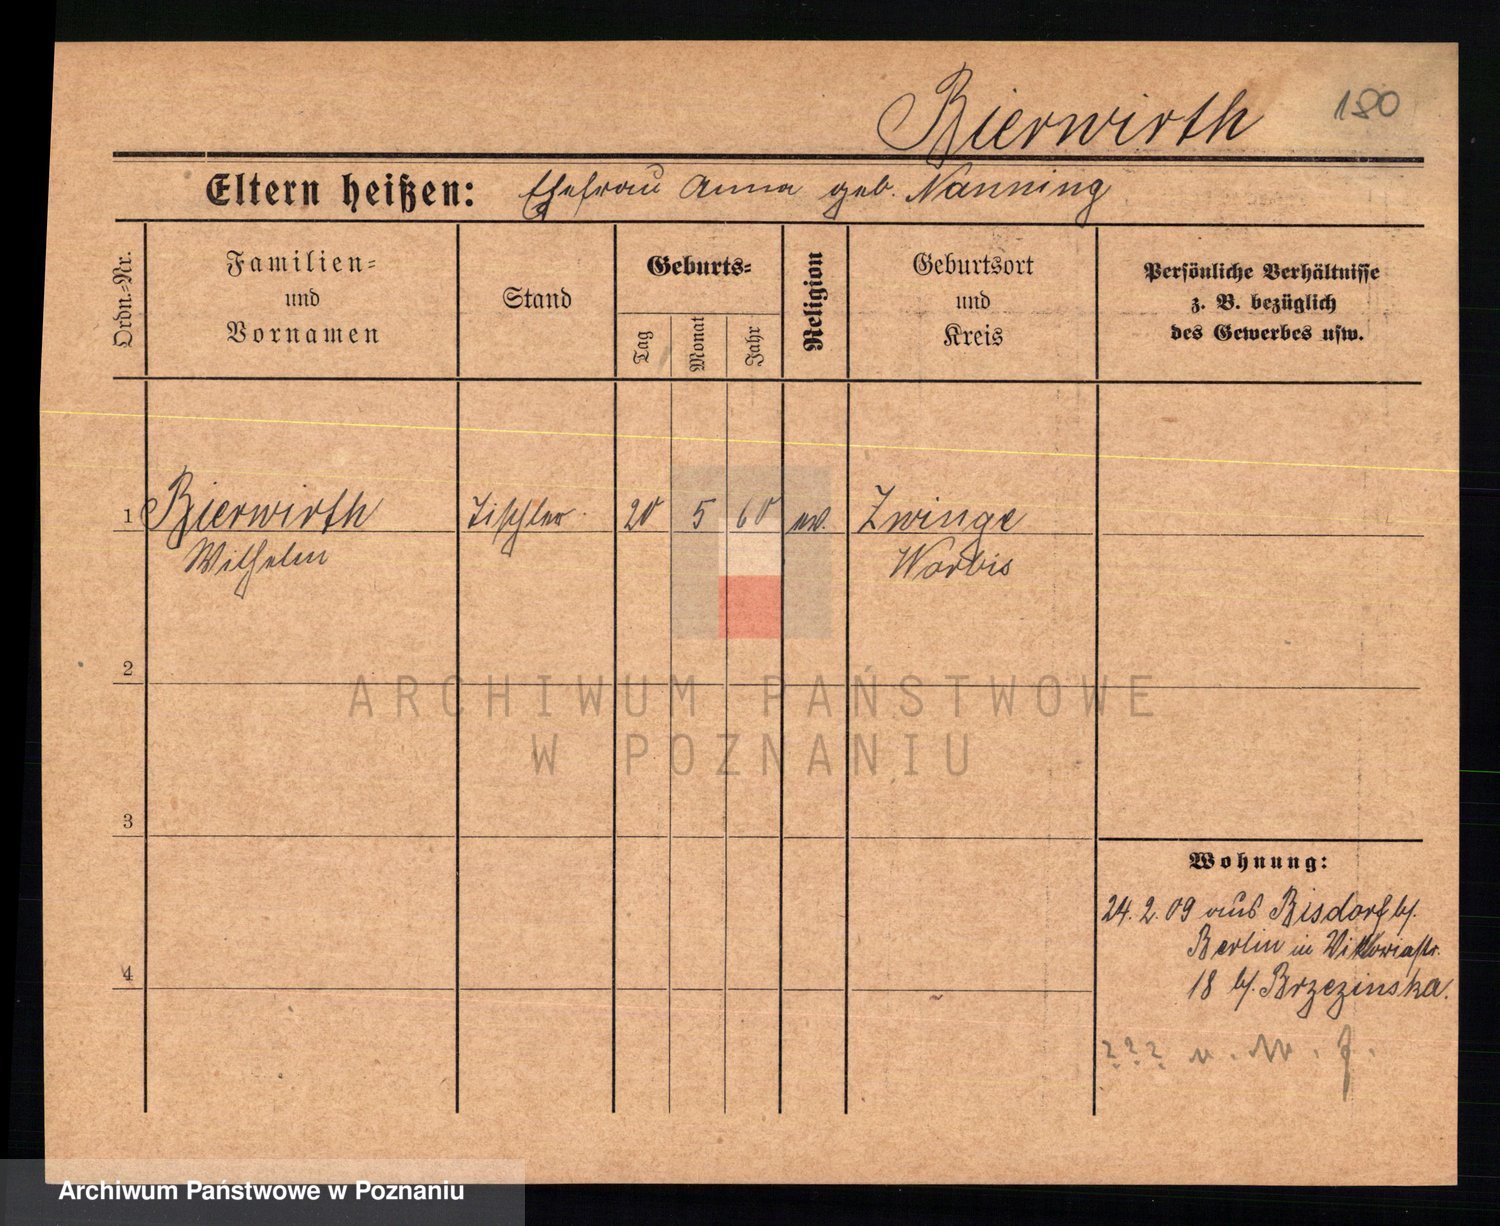 Bierwirth 180
Eltern heißen: Ehefrau Anna geb. Nanning
Ordn.-Nr.
Familien-
und
Vornamen
Stand
Geburts-
Tag
Monat
Jahr
Religion
Geburtsort
und
Kreis
Persönliche Verhältnisse
z. B. bezüglich
des Gewerbes usw.
1 Bierwirth Tischler 20 5 60 ev. Zwinge
Wilhelm Worbis
2
ARCHIWUM PAŃSTWOWE
W POZNANIU
3
Wohnung:
24. 2. 09 aus Risdorf b/.
Berlin in Viktoriastr.
4
18 b/. Brzezinska.
??? n. N. f.
Archiwum Państwowe w Poznaniu